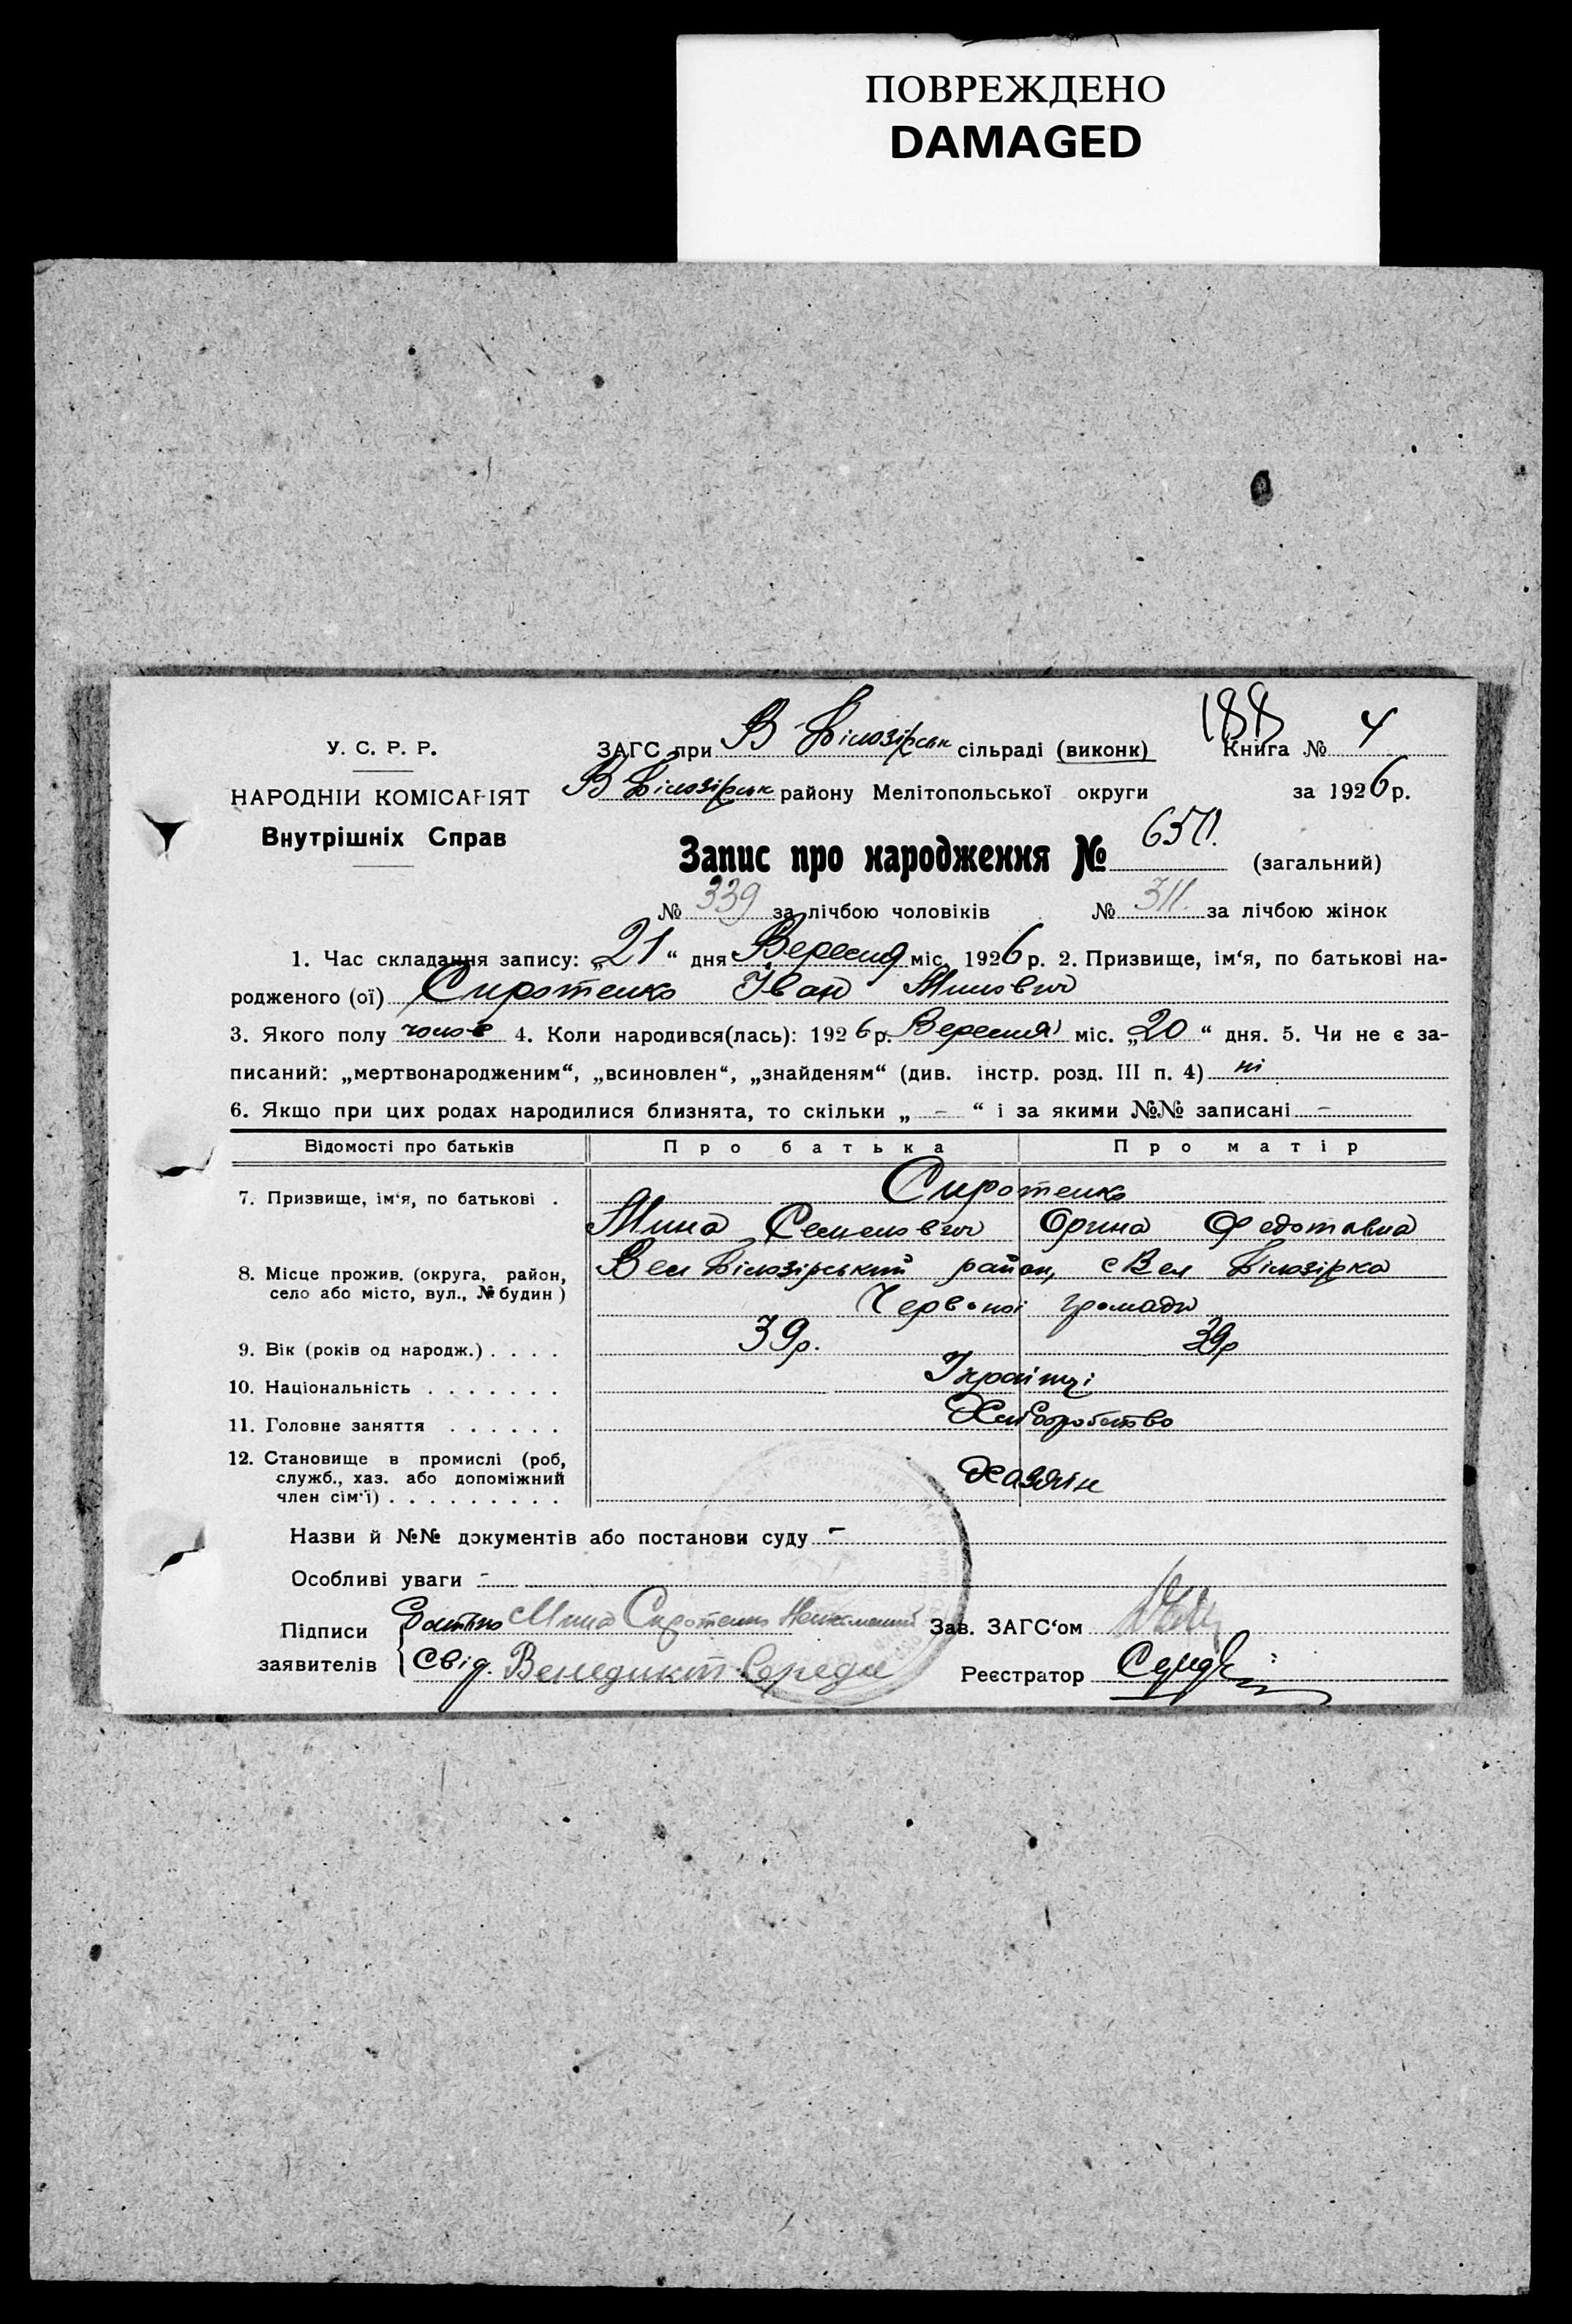 ПОВРЕЖДЕНО
DAMAGED
188
У. С. Р. Р.
ЗАГС при В Білозірськ сільраді (виконк) Книга № 4
НАРОДНІЙ КОМІСАРІЯТ
В Білозірськ району Мелітопольської округи за 1926 р.
Внутрішніх Справ
Запис про народження № 650. (загальний)
№ 339 за лічбою чоловіків № 311. за лічбою жінок
1. Час складання запису: „21“ дня Вересня міс. 1926 р. 2. Призвище, ім‘я, по батькові на-
родженого (ої) Сиротенко Іван Минович
3. Якого полу чолов 4. Коли народився(лась): 1926 р. Вересня міс. „20“ дня. 5. Чи не є за-
писаний: „мертвонародженим“, „всиновлен“, „знайденям“ (див. інстр. розд. III п. 4) ні
6. Якщо при цих родах народилися близнята, то скільки „ - “ і за якими №№ записані -
Відомості про батьків Про батька Про матір
7. Призвище, ім‘я, по батькові . Сиротенко
Мина Семенович Орина Федотовна
8. Місце прожив. (округа, район, село або місто, вул., № будин) Вел Білозірський район, с Вел Білозірка
Червоної громади
9. Вік (років од народж.) . . . . 39р. 39р
10. Національність . . . . . . . Українці
11. Головне заняття . . . . . . Хліборобство
12. Становище в промислі (роб, служб., хаз. або допоміжний член сім‘ї) . . . . . . . . . Хазяїн
Назви й №№ документів або постанови суду -
Особливі уваги -
Підписи заявителів Батько Мина Сиротенко Неписьменний Зав. ЗАГС‘ом
Свід. Венедикт Середа Реєстратор